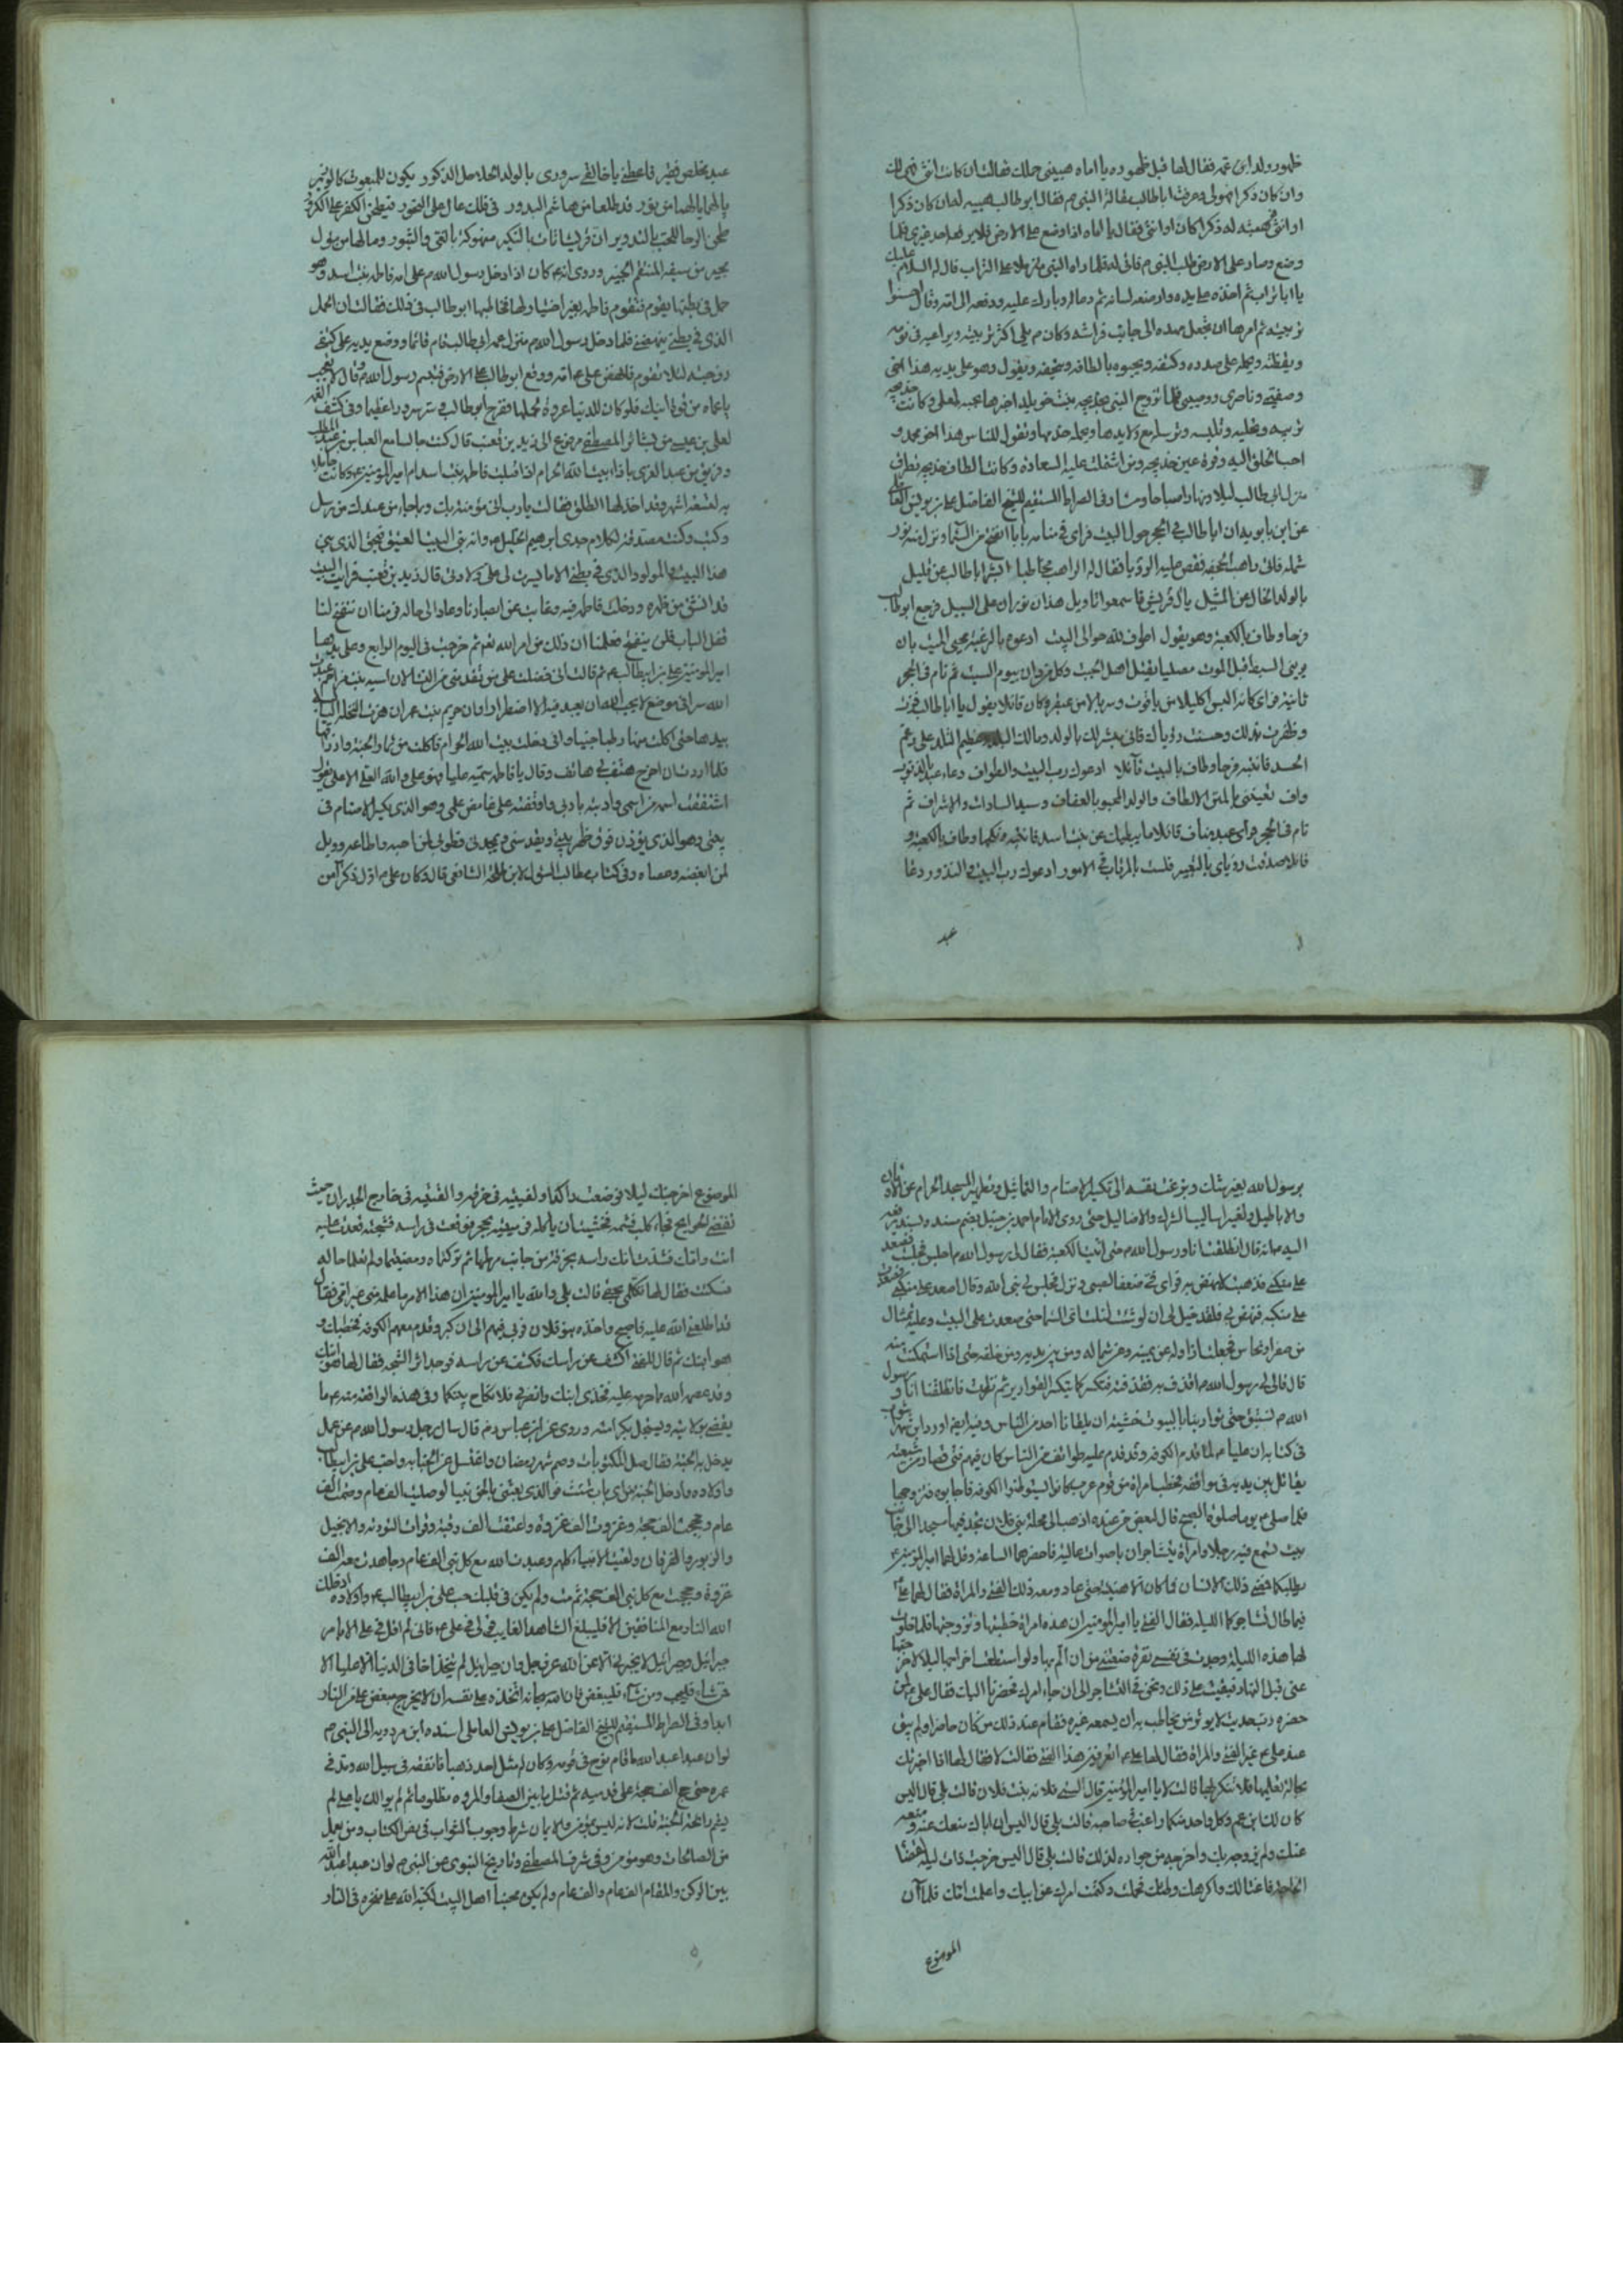 ظهور ولد ابن عمه فقال لها قبل ظهوره يا اماه هبيني حملك فقالت ان كانت انثى فهي لك
وان كان ذكرا فهو لي وعرفت ابا طالب مقالة النبي ص فقال ابو طالب هبيه له ان كان ذكرا
او انثى فهبته له ذكرا كان او انثى فقال يا اماه اذا وضع على الارض فلا يرفعها احد غيري فلما
وضع وصار على الارض طلب النبي ص فاتى له فلما راه النبي على التراب قال له السلام عليك
يا ابا تراب ثم اخذه على يده وارضعه لسانه ثم دعا له وبارك عليه ودفعه الى امه وقال احسنوا
تربيته ثم امرها ان تجعل مهده الى جانب فراشه وكان ص يلي اكثر تربيته ويراعيه في نومه
ويقظته ويحمله على صدره وكتفه ويحبوه بالطافه وتحفه ويقول وهو على يديه هذا اخي
وصفيي وناصري ووصيي فلما تزوج النبي خديجة بنت خويلد اخبرها بمحبته لعلي وكانت خديجة
تزينه وتحليه وتلبسه وترسله مع ولايدها ويحمله خدمها وتقول للناس هذا اخو محمد و
احب الخلق اليه وقرة عين خديجة ومن اشتملت عليه السعادة وكانت الطاف خديجة تطرق
منزل ابي طالب ليلا ونهارا وصباحا ومساء وفي الصراط المستقيم للشيخ الفاضل علي بن يونس العاملي
عن ابن بابويه ان ابا طالب في الحجر حول البيت فراى في منامه بابا انفتح من السماء ونزل منه نور
شمله فاتى راهب الجحفة فقص عليه الرؤيا فقال له الراهب مخاطبا ابشر ابا طالب عن قليل
بالولد الخال عن المثيل يال قريش فاسمعوا تاويل هذان نوران على السبيل فرجع ابو طالب
فرحا وطاف بالكعبة وهو يقول اطوف لله حوالي البيت ادعوه بالرغبة محيي الميت بان
يريني السبط قبل الموت ثم نام في الحجر
ثانية فراى كانه البس اكليلا من ياقوت وسربالا من عبقر وكان قائلا يقول يا ابا طالب قرت
وظفرت يداك وحسنت رؤياك فاتى لك بالولد ومالك البلد وعظيم التلد على رغم
الحسد فانتبه فرحا وطاف بالبيت قائلا ادعوك رب البيت والطواف دعاء عبد بالذنوب
واف تعينني بالمنن الالطاف والولد المحبو بالعفاف وسيد السادات والاشراف ثم
نام في الحجر فراى عبد مناف قائلا ما يبطيك عن بنت اسد فانتبه ونكحها وطاف بالكعبة و
قائلا صدقت رؤياي بالتعبير فلست بالمرتاب في الامور ادعوك رب البيت والنذور دعا
عبد
عبد مخلص فقير فاعطني يا خالقي سروري بالولد الحلاحل الذكور يكون للمبعوث كالوزير
طحن الرحا للحب بالتدوير ان قريشا نات بالنكير منهوكة بالغي والثبور ومالها من موئل
مجير من سيفه المنتقم المبير وروي انه كان اذا دخل رسول الله ص على امه فاطمة بنت اسد وهو
حمل في بطنها يقوم فتقوم فاطمة بغير اختيارها فخاطبها ابو طالب في ذلك فقالت ان الحمل
الذي في بطني ينهضني فلما دخل رسول الله ص منزل عمه ابي طالب قام قائما ووضع يديه على كتفي
زوجته لئلا تقوم على الارض فتبسم رسول الله ص وقال لا تعجب
لعلي بن عيسى من بشائر المصطفى مرفوع الى يزيد بن قعنب قال كنت جالسا مع العباس بن عبد المطلب
وفريق من عبد العزى بازاء بيت الله الحرام اذ اقبلت فاطمة بنت اسد ام امير المؤمنين ع وكانت حاملا
به لتسعة اشهر وقد اخذها الطلق فقالت يا رب اني مؤمنة بك وبما جاء من عندك من رسل
وكتب وكنت مصدقة لكلام جدي ابرهيم الخليل ص وانه بنى البيت العتيق فبحق الذي بنى
هذا البيت والمولود الذي في بطني الا ما يسرت لي علي ولادتي قال يزيد بن قعنب فرايت البيت
قد انشق من ظهره ودخلت فاطمة فيه وغابت عن ابصارنا وعاد الى حاله فرمنا ان ينفتح لنا
قفل الباب فلم ينفتح فعلمنا ان ذلك من امر الله تعم ثم خرجت في اليوم الرابع وعلى يديها
امير المؤمنين علي بن ابيطالب ع ثم قالت اني فضلت على من تقدمني من النساء لان اسية بنت مزاحم عبدت
الله سرا في موضع لا يحب الله ان يعبد فيه الا اضطرارا وان مريم بنت عمران هزت النخلة اليابسة
بيدها حتى اكلت منها رطبا جنيا واني دخلت بيت الله الحرام فاكلت من ثمار الجنة وارزاقها
فلما اردت ان اخرج هتف بي هاتف وقال يا فاطمة سميه عليا فهو علي والله العلي الاعلى يقول
اشتققت اسمه من اسمي وادبته بادبي واوقفته على غامض علمي وهو الذي يكسر الاصنام في
بيتي وهو الذي يؤذن فوق ظهر بيتي ويقدسني ويمجدني فطوبى لمن احبه واطاعه وويل
لمن ابغضه وعصاه وفي كتاب مطالب السؤل لابن طلحة الشافعي قال كان علي ع اول ذكر آمن
برسول الله بغير شك وبرغبت نفسه الى تكسير الاصنام والتماثيل وتطهير المسجد الحرام عن الاوثان
والاباطيل وتغيير اساليب الشرك والاضاليل حتى روى الامام احمد بن حنبل بضم سنده وليسنده برفعه
اليه ع انه قال انطلقت انا ورسول الله ص حتى اتينا الكعبة فقال لي رسول الله ص اجلس فجلست فصعد
على منكبي فذهبت لانهض به فراى في ضعفا فنزل فجلس لي نبي الله وقال اصعد على منكبي فصعدت
على منكبه فنهض بي فلقد خيل لي ان لو شئت لنلت افق السما حتى صعدت على البيت وعليه تمثال
من صفر او نحاس فجعلت ازاوله عن يمينه وعن شماله ومن بين يديه ومن خلفه حتى اذا استمكنت منه
قال لي رسول الله ص اقذف به فقذفته فتكسر كما يتكسر القوارير ثم نزلت فانطلقت انا و رسول
الله ص نستبق حتى توارينا بالبيوت خشية ان يلقانا احد من الناس
في كتابه ان عليا ع لما قدم الكوفة وقدم عليه طوائف من الناس كان فيهم فتى فصار من شيعته
يقاتل بين يديه في مواقفه فخطب امراة من قوم عرب كانوا استوطنوا الكوفة فاجابوه فتزوجها
فلما صلى ع يوما صلوة الصبح قال لبعض من عنده اذهب الى محلة بني فلان تجد فيها مسجدا الى جانب
بيت تسمع فيه رجلا وامراة يتشاجران باصوات عالية فاحضرهما الساعة وقل لهما امير المؤمنين ع
يطلبكما فمضى ذلك الانسان فما كان الا هنيئة حتى عاد ومعه ذلك الفتى والمراة فقال لهما علي ع
فيما طال تشاجركما الليلة فقال الفتى يا امير المؤمنين ان هذه امراة خطبتها وتزوجتها فلما خلوت
بها هذه الليلة وجدت في نفسي نفرة منعتني من ان الم بها ولو استطعت اخراجها ليلا لاخرجتها
عني قبل النهار فبقيت على ذلك ونحن في التشاجر الى ان جاء امرك فحضرنا اليك فقال علي ع لمن
حضره رب حديث لا يؤثر من يخاطب به ان يسمعه غيره فقام عند ذلك من كان حاضرا ولم يبق
عند علي ع غير الفتى والمراة فقال لها علي ع اتعرفين هذا الفتى فقالت لا فقال لها اذا اخبرتك
بحالة تعلمينها فلا تنكريها قالت لا يا امير المؤمنين قال الست فلانة بنت فلان قالت بلى قال اليس
كان لك ابن عم وكل واحد منكما راغب في صاحبه قالت بلى قال اليس ان اباك منعك عنه ومنعه
عنك ولم يزوجه بك واخرجه من جواره لذلك قالت بلى قال اليس خرجت ذات ليلة لقضاء
الحاجة فاغتالك واكرهك ووطئك فحملت وكتمت امرك عن ابيك واعلمت امك فلما آن
الموضوع
الموضوع اخرجتك ليلا فوضعت ولدا ولففتيه في خرقة والقيتيه في خارج الجدران حيث
تقضى الحوائج فجاء كلب فشمه فخشيت ان ياكله فرميتيه بحجر فوقعت في راسه فشجته فعدت عليه
انت وامك فشدت امك راسه بخرقة من جانب مرطها ثم تركتماه ومضيتما ولم تعلما حاله
فسكتت فقال لها تكلمي بحق قالت بلى والله يا امير المؤمنين ان هذا الامر ما علمه مني غير امي فقال
قد اطلعني الله عليه فاصبح واخذه بنو فلان فربي فيهم الى ان كبر وقدم معهم الكوفة فخطبك و
هو ابنك ثم قال للفتى اكشف عن راسك فكشف عن راسه فوجد اثر الشجة فقال لها هو ابنك
وقد عصمه الله ما حرمه عليه فخذي ابنك وانصرفي فلا نكاح بينكما وفي هذه الواقعة منه ع ما
يقضي بولايته ويسجل بكرامته وروي عن ابن عباس رض قال سال رجل رسول الله ص عن عمل
يدخل به الجنة فقال صل المكتوبات وصم شهر رمضان واغتسل من الجنابة واحب علي بن ابيطالب
واولاده وادخل الجنة من اي باب شئت فوالذي بعثني بالحق نبيا لو صليت الف عام وصمت الف
عام وحججت الف حجة وغزوت الف غزوة واعتقت الف رقبة وقرات التورية والانجيل
والزبور والفرقان ولقيت الانبياء كلهم وعبدت الله مع كل نبي الف عام وجاهدت معه الف
غزوة وحججت مع كل نبي الف حجة ثم مت ولم يكن في قلبك حب علي بن ابيطالب ع واولاده ادخلك
الله النار مع المنافقين الا فليبلغ الشاهد الغائب قولي في علي ع فاني لم اقل في علي الا بامر
جبرائيل وجبرائيل لا يخبرني الا عن الله عز وجل وان جبرايل لم يتخذ اخا في الدنيا الا عليا الا
من شاء فليحب ومن شاء فليبغض فان الله سبحانه اتخذه على نفسه ان لا يخرج مبغض علي من النار
ابدا وفي الصراط المستقيم للشيخ الفاضل علي بن يونس العاملي اسنده ابن مردويه الى النبي ص
لو ان عبدا عبد الله ما قام نوح في قومه وكان له مثل احد ذهبا فانفقه في سبيل الله ومد في
عمره حتى حج الف حجة على قدميه ثم قتل ما بين الصفا والمروة مظلوما ثم لم يوالك يا علي لم
يشم رائحة الجنة قلت لانه ليس بمؤمن والايمان شرط وجوب الثواب في نص الكتاب ومن يعمل
من الصالحات وهو مؤمن وفي شرف المصطفى وتاريخ النسوي عن النبي ص لو ان عبدا عبد الله
بين الركن والمقام الف عام والف عام ولم يكن محبا اهل البيت لكبه الله على منخره في النار